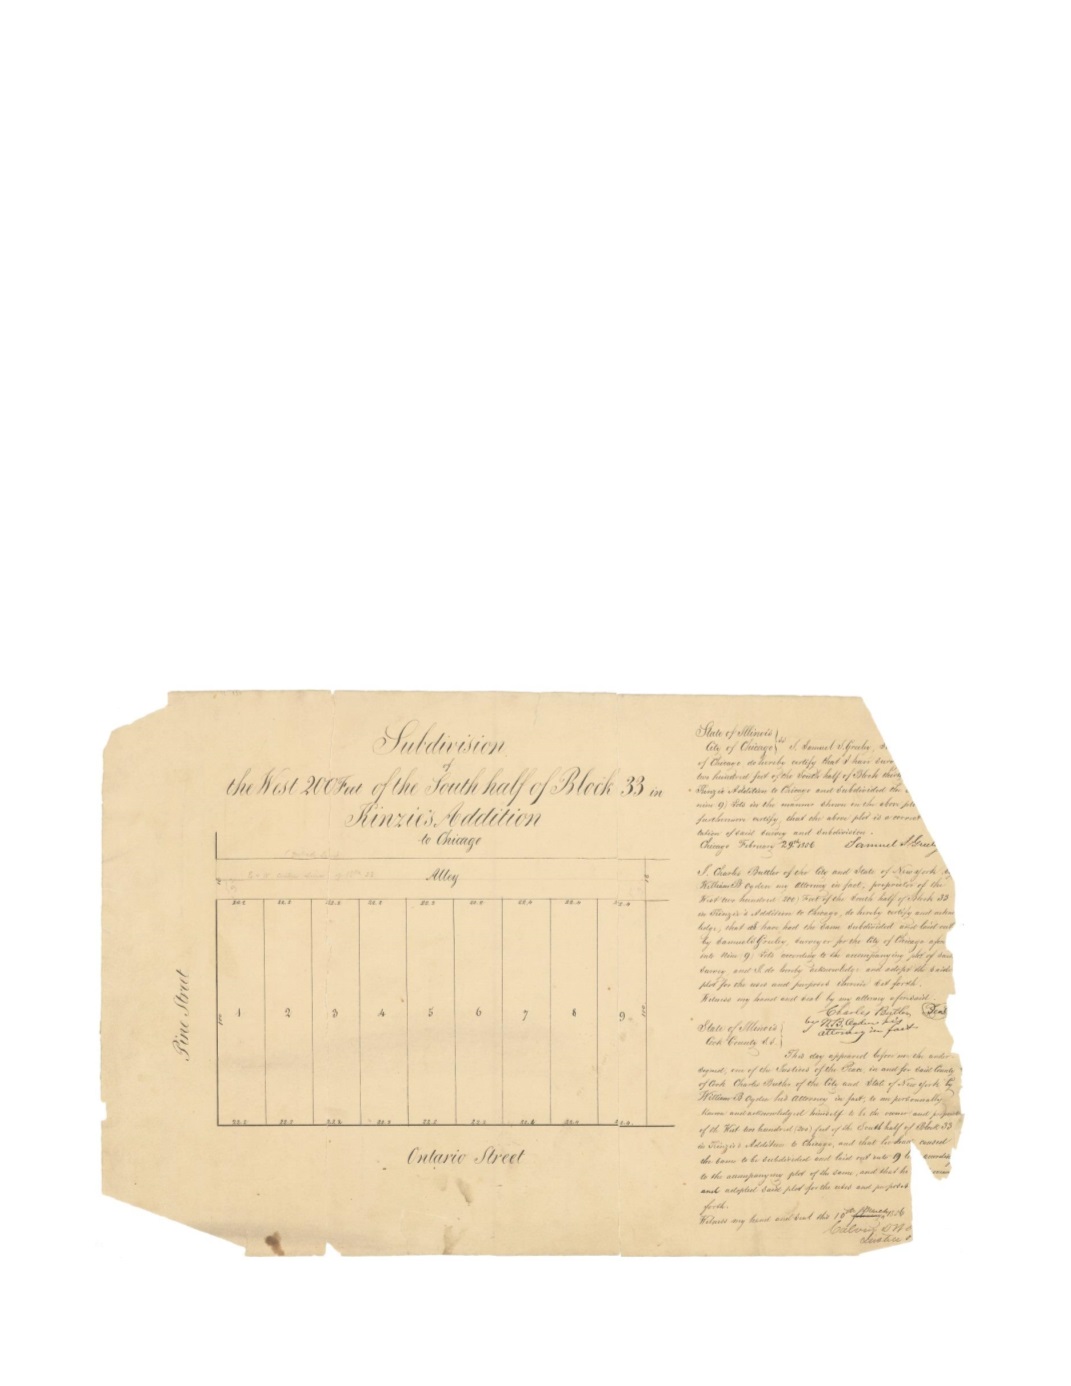 Subdivision
of
the West 200 Feet of the South half of Block 33 in
Kinzie's Addition
to Chicago
Alley
22.2 22.2 22.2 22.2 22.2
1 2 3 4 5 6 7 8 9
Pine Street
Ontario Street
State of Illinois
City of Chicago ss I Samuel S. Greeley,
of Chicago do hereby certify that I have
two hundred feet of the South half of Block
Kinzie's Addition to Chicago and subdivided the
nine 9) lots in the manner shown on the above
furthermore certify, that the above plot is a correct
of said survey and subdivision.
Chicago February 29th 1856 Samuel S Greeley
I, Charles Butler of the City and State of New York by
William B Ogden my Attorney in fact, proprietor of the
West two hundred 200) Feet of the South half of Block 33
in Kinzie's Addition to Chicago, do hereby certify and
ledge, that I have had the same subdivided and laid out
by Samuel S Greeley, Surveyor for the City of Chicago
into Nine 9) lots according to the accompanying plot of said
survey and I do hereby acknowledge and adopt the said
plot for the uses and purposes therein set forth.
Witness my hand and seal by my attorney aforesaid.
Charles Butler Seal
by W.B. Ogden his
attorney in fact
State of Illinois
Cook County S.S.
This day appeared before me the under
signed, one of the Justices of the Peace in and for said County
of Cook Charles Butler of the City and State of New York by
William B Ogden his Attorney in fact, to me personally
known and acknowledged himself to be the owner and
of the West two hundred (200) feet of the South half of Block 33
in Kinzie's Addition to Chicago, and that he had caused
the same to be subdivided and laid out into 9
to the accompanying plot of the same, and that he
and adopted said plot for the uses and purposes
forth.
Witness my hand and seal this 10th March 1856
Calvin